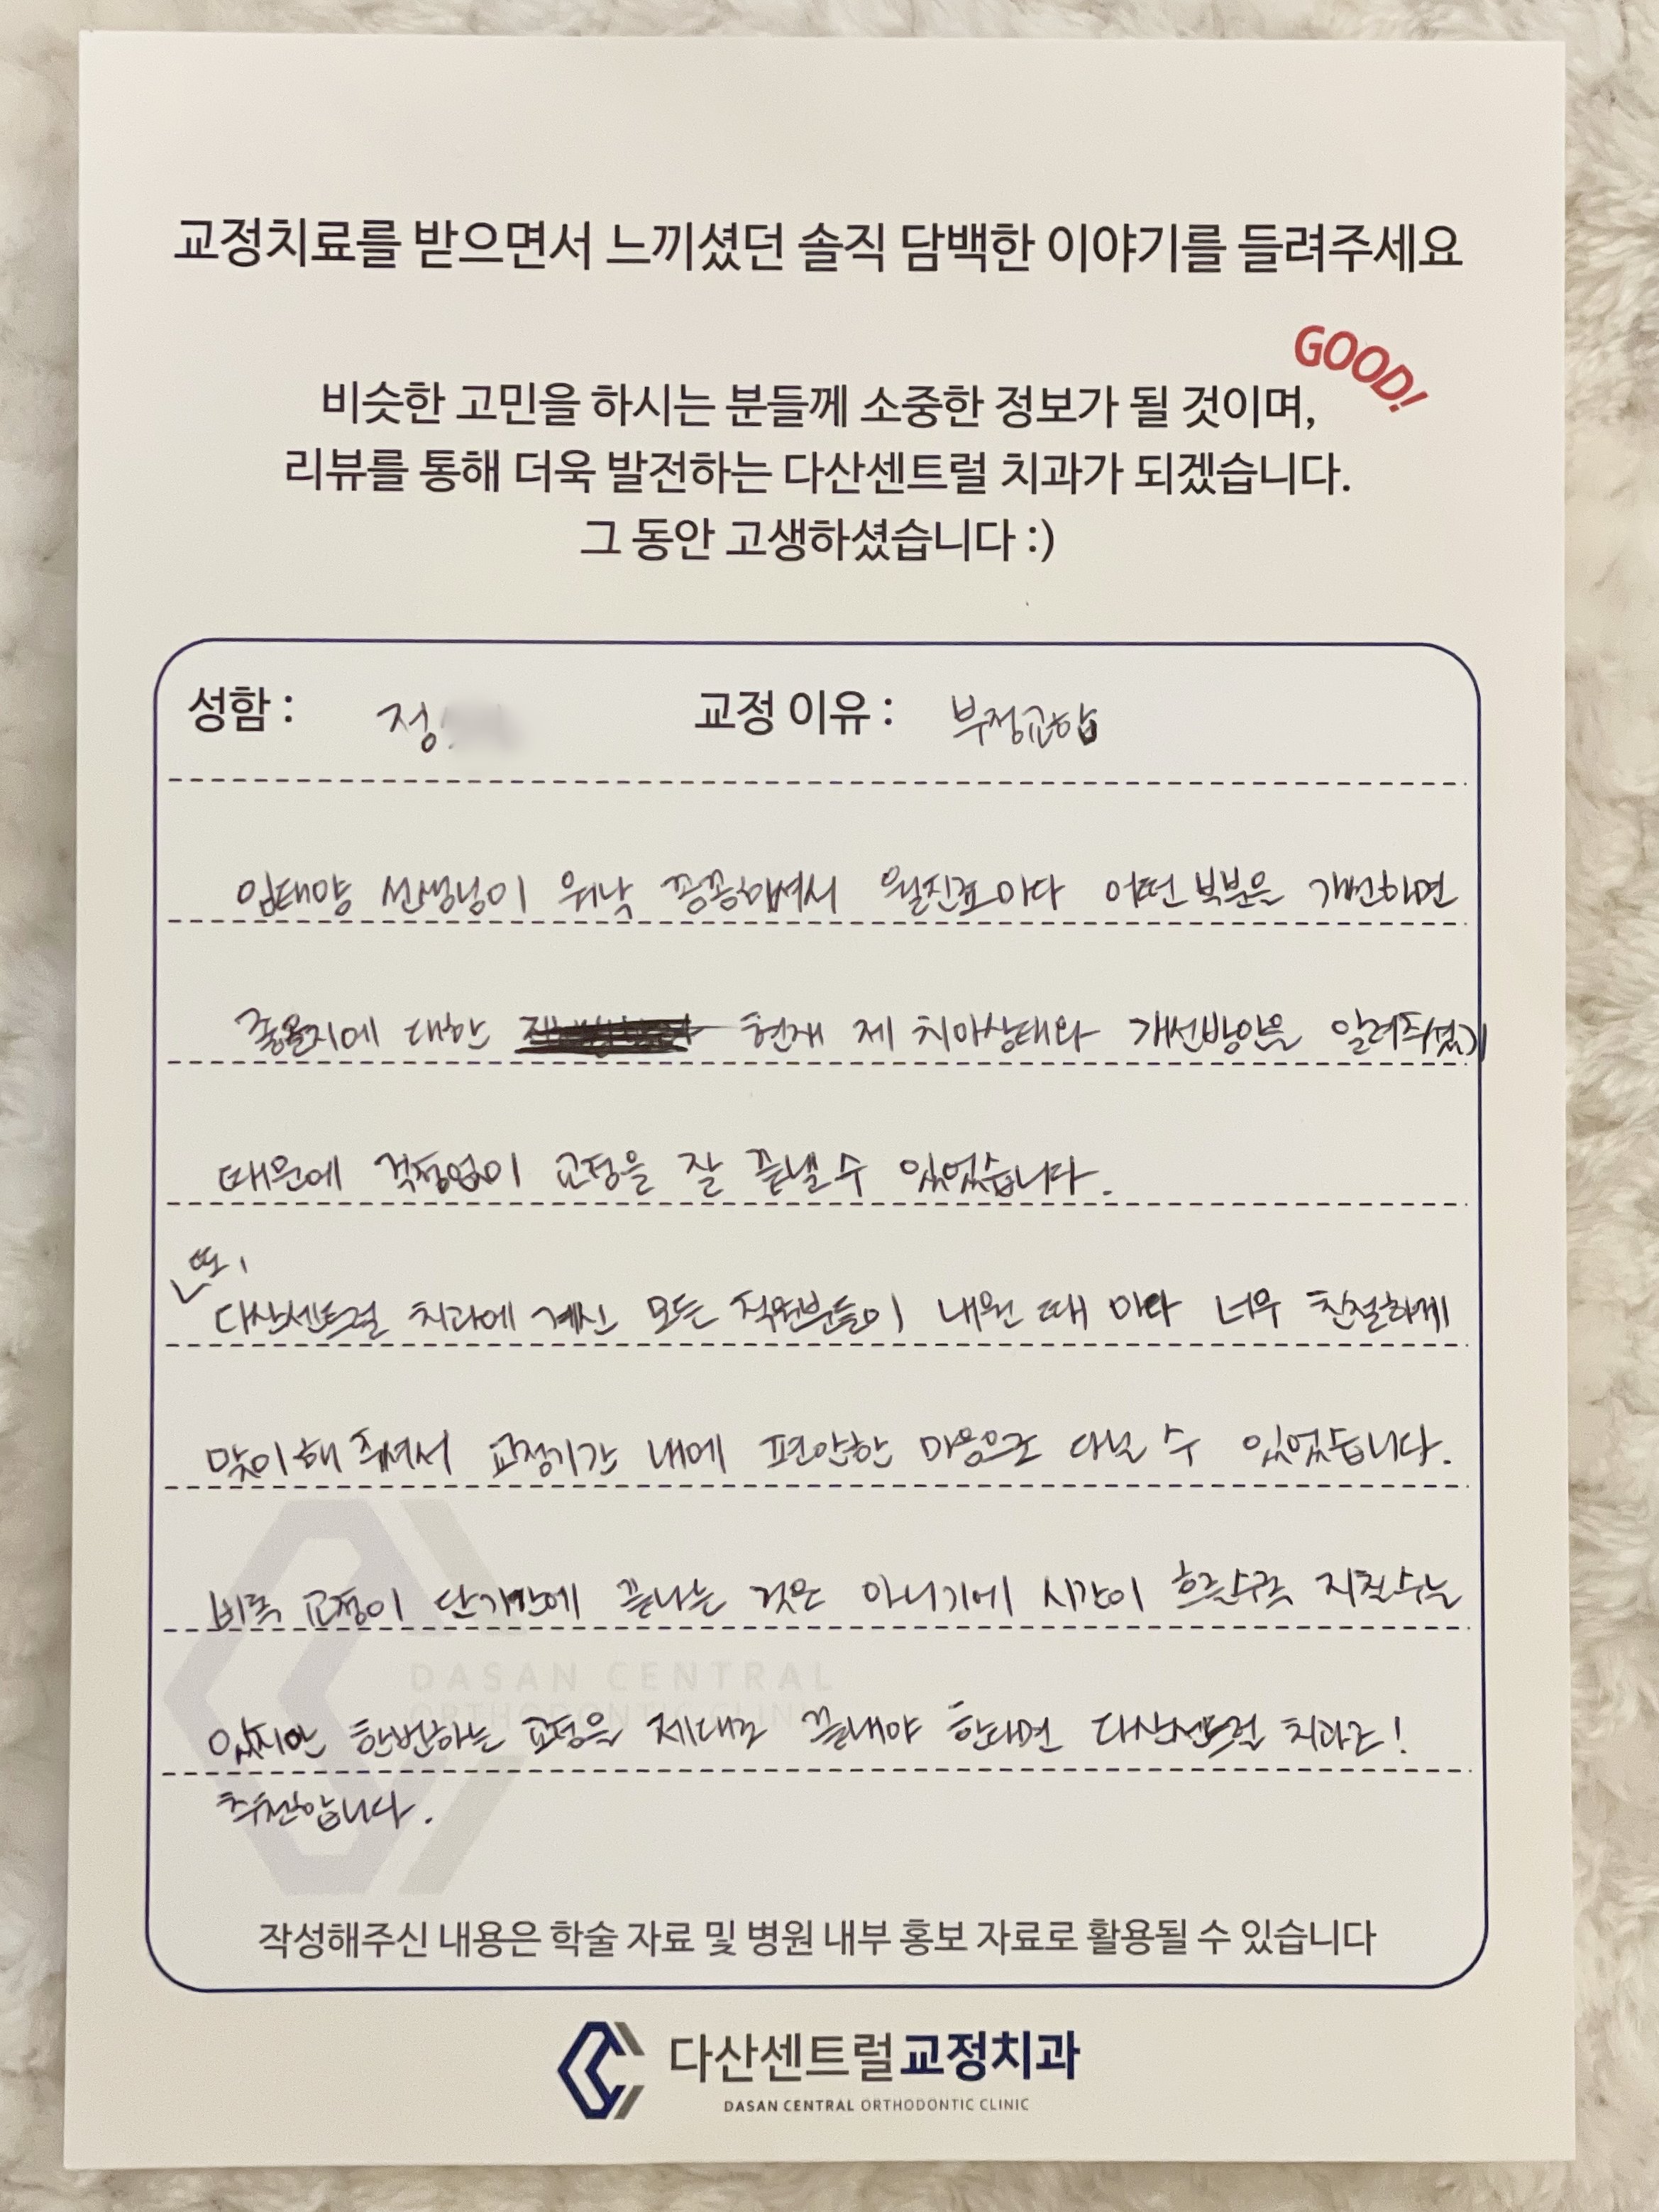 교정치료를 받으면서 느끼셨던 솔직 담백한 이야기를 들려주세요
GOOD!
비슷한 고민을 하시는 분들께 소중한 정보가 될 것이며,
리뷰를 통해 더욱 발전하는 다산센트럴 치과가 되겠습니다.
그 동안 고생하셨습니다 :)
성함 : 정 교정 이유 : 부정교합
임태양 선생님이 워낙 꼼꼼하셔서 월진료마다 어떤 부분은 개선하면
좋을지에 대한 현재 제 치아상태와 개선방안을 알려주셨기
때문에 걱정없이 교정을 잘 끝낼 수 있었습니다.
또,
다산센트럴 치과에 계신 모든 직원분들이 내원 때 마다 너무 친절하게
맞이해 주셔서 교정기간 내에 편안한 마음으로 다닐 수 있었습니다.
비록 교정이 단기간에 끝나는 것은 아니기에 시간이 흐를수록 지칠수는
있지만 한번하는 교정을 제대로 끝내야 한다면 다산센트럴 치과로!
추천합니다.
DASAN CENTRAL
ORTHODONTIC CLINIC
작성해주신 내용은 학술 자료 및 병원 내부 홍보 자료로 활용될 수 있습니다
다산센트럴교정치과
DASAN CENTRAL ORTHODONTIC CLINIC